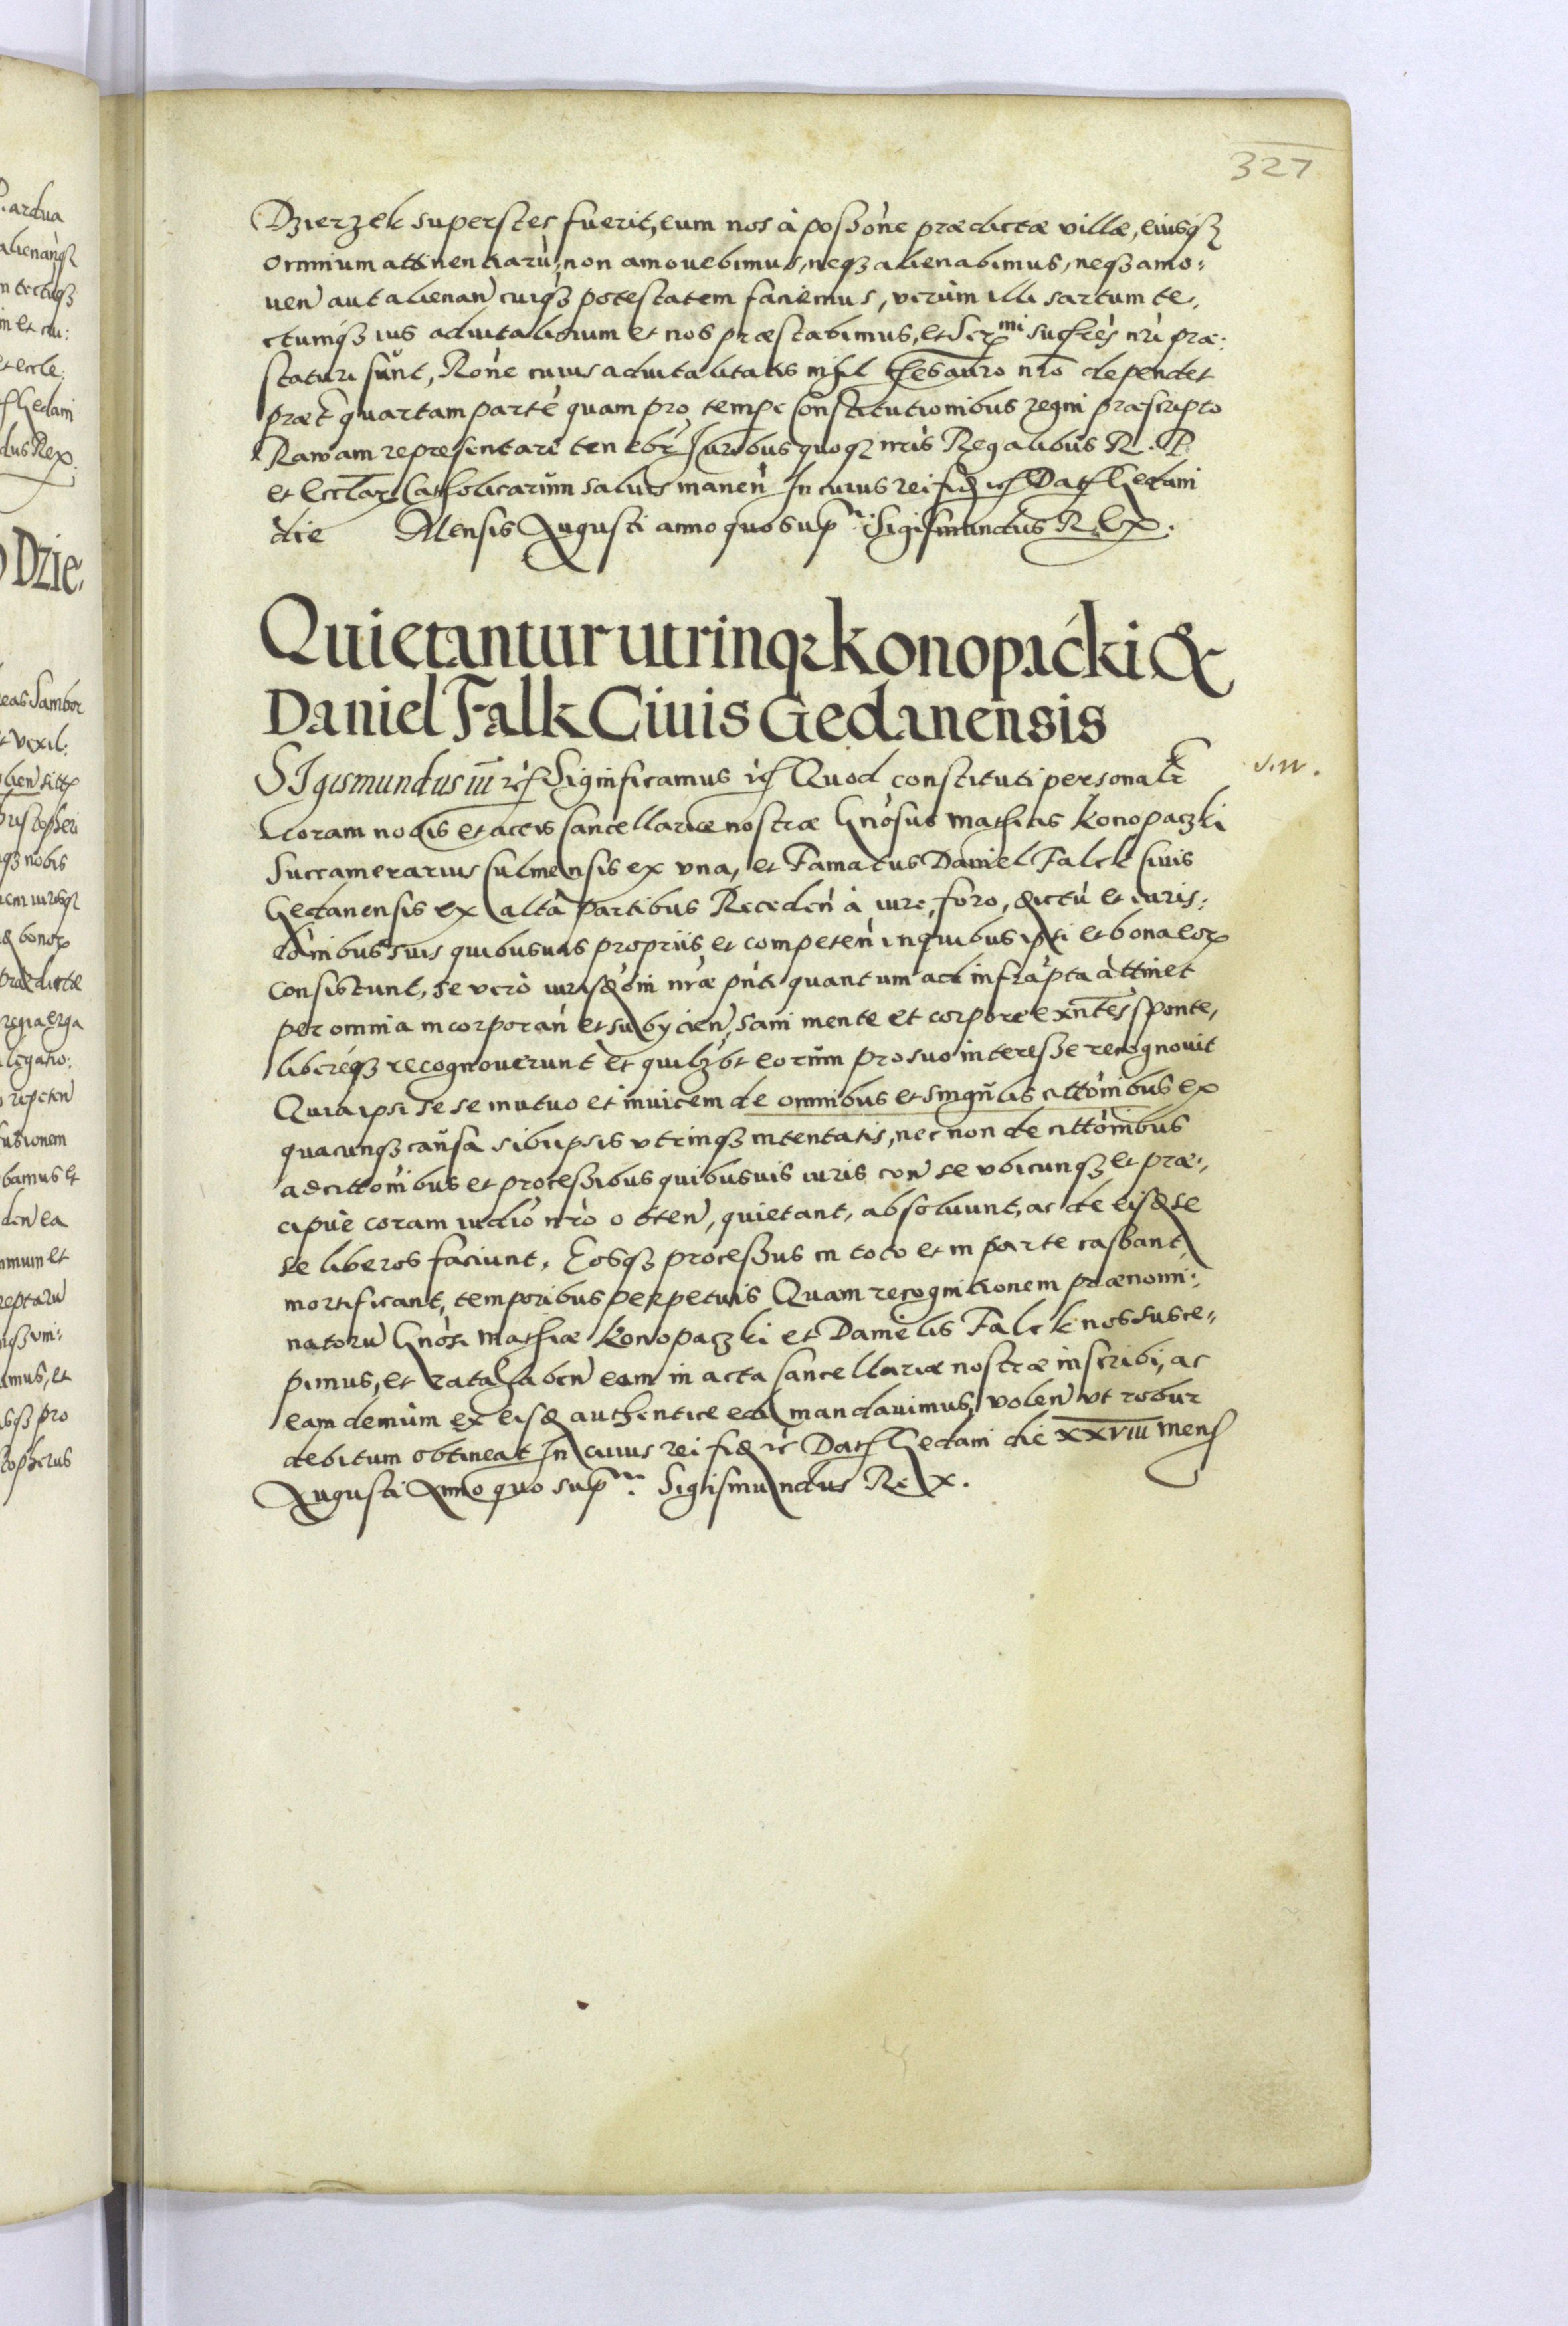 327
Dzierzek superstes fuerit, eum nos à possòne prædictæ villæ, eiusq3
omnium attinentiarù, non amouebimus, neq3 alienabimus, neq3 amo:
uen̄ aut alienan̄ cuiq3 potestatem faciemus, verùm illi sartum te,
ctumq3 ius aduitalitium et nos præstabimus, et Ser^mi succes̄ nri præ:
staturi sunt, Rōne cuius aduitalitatis nihil thesauro nrō dependet
præt̄ quartam partē quam pro temp̄e Constitutionibus regni præscripto
Rawam representare tenebr̄ Iuribus quoq3 nris Regalibus R. P.
et Eccl̄ar̄ Catholicarum saluis manen̄ In cuius rei fid̄ ꝛc̄ Dat̄ Gedani
die Mensis Augusti anno quo sup^ra. Sigismundus Rex.
Quietantur utrinq3 Konopaćki &
Daniel Falk Ciuis Gedanensis
SIgismundus iii ꝛc̄ Significamus ꝛc̄ Quod constituti personalr̄
coram nobis et actis Cancellariæ nostræ Gnòsus Mathias Konopaczki
Succamerarius Culmensis ex vna, et Famatus Daniel Falck Ciuis
Gedanensis ex altâ partibus Receden̄ à iure, foro, dictù et iuris:
dònibus suis quibusuis propriis et competen̄ in quibus ipsi et bona eoꝝ
consistunt, se verò iurisdòni nræ pn̄ti quantum ad infràpta àttinet
per omnia incorporan̄ et subÿcien̄, sani mente et corpore exn̄tes sponte,
libereq3 recognouerunt et quil3bt eorum pro suo interesse recognouit
Quia ipsi sese mutuo et inuicem de omnibus et singulis cittònibus ex
quacunq3 causa sibiipsis vtrinq3 intentatis, nec non de cittònibus
adcittònibus et processibus quibusuis iuris con̄ se vbicunq3 et præ:,
cipuè coram iudiò nrò obten̄, quietant, absoluunt, ac de eisd̄ se
se liberos faciunt, Eosq3 processus in toto et in parte cassant
mortificant, temporibus perpetuis Quam recognitionem prænomi:
natorù Gnòsi Mathiæ Konopaczki et Danielis Falck nos susce:,
pimus, et rata haben̄ eam in acta Cancellariæ nostræ inscribi, ac
eam demùm ex eisd̄ authentice edi mandauimus, volen̄ vt robur
debitum obtineat In cuius rei fid̄ ꝛc̄ Dat̄ Gedani die XXVIII mens̄
Augusti Anno quo sup^ra. Sigismundus Rex.